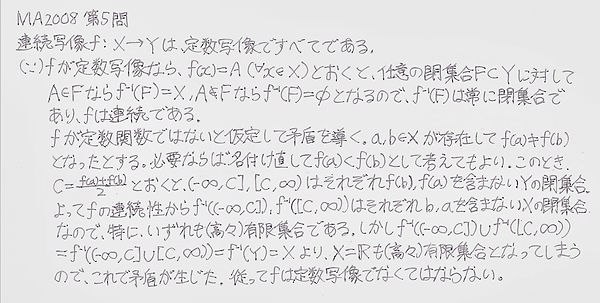 MA2008 第5問
連続写像f: X→Yは、定数写像ですべてである。
(∵) fが定数写像なら、f(x)=A (∀x∈X) とおくと、任意の閉集合F⊂Yに対して
A∈Fなら f⁻¹(F)=X, A∉Fなら f⁻¹(F)=φとなるので、f⁻¹(F)は常に閉集合で
あり、fは連続である。
fが定数関数ではないと仮定して矛盾を導く。a,b∈Xが存在して f(a)≠f(b)
となったとする。必要ならば名付け直して f(a)<f(b)として考えてもよい。このとき、
C=\frac{f(a)+f(b)}{2}とおくと、(-∞,C], [C,∞)はそれぞれf(b), f(a)を含まないYの閉集合。
よってfの連続性から f⁻¹((-∞,C]), f⁻¹([C,∞)はそれぞれb,aを含まないXの閉集合
なので、特に、いずれも(高々)有限集合である。しかし f⁻¹((-∞,C])∪f⁻¹([C,∞))
=f⁻¹((-∞,C]∪[C,∞))=f⁻¹(Y)=Xより、X=ℝも(高々)有限集合となってしまう
ので、これで矛盾が生じた。従ってfは定数写像でなくてはならない。